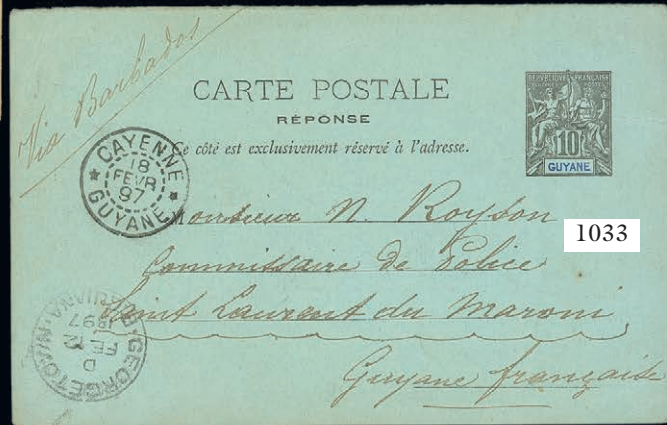 Via Barbados
CARTE POSTALE
RÉPONSE
Ce côté est exclusivement réservé à l'adresse.
RÉPUBLIQUE FRANÇAISE
10
GUYANE
CAYENNE
18
FEVR
97
GUYANE
1033
Monsieur N. Royson
Commissaire de Police
Saint Laurent du Maroni
Guyane française
GEORGETO
D
FE 12
1897